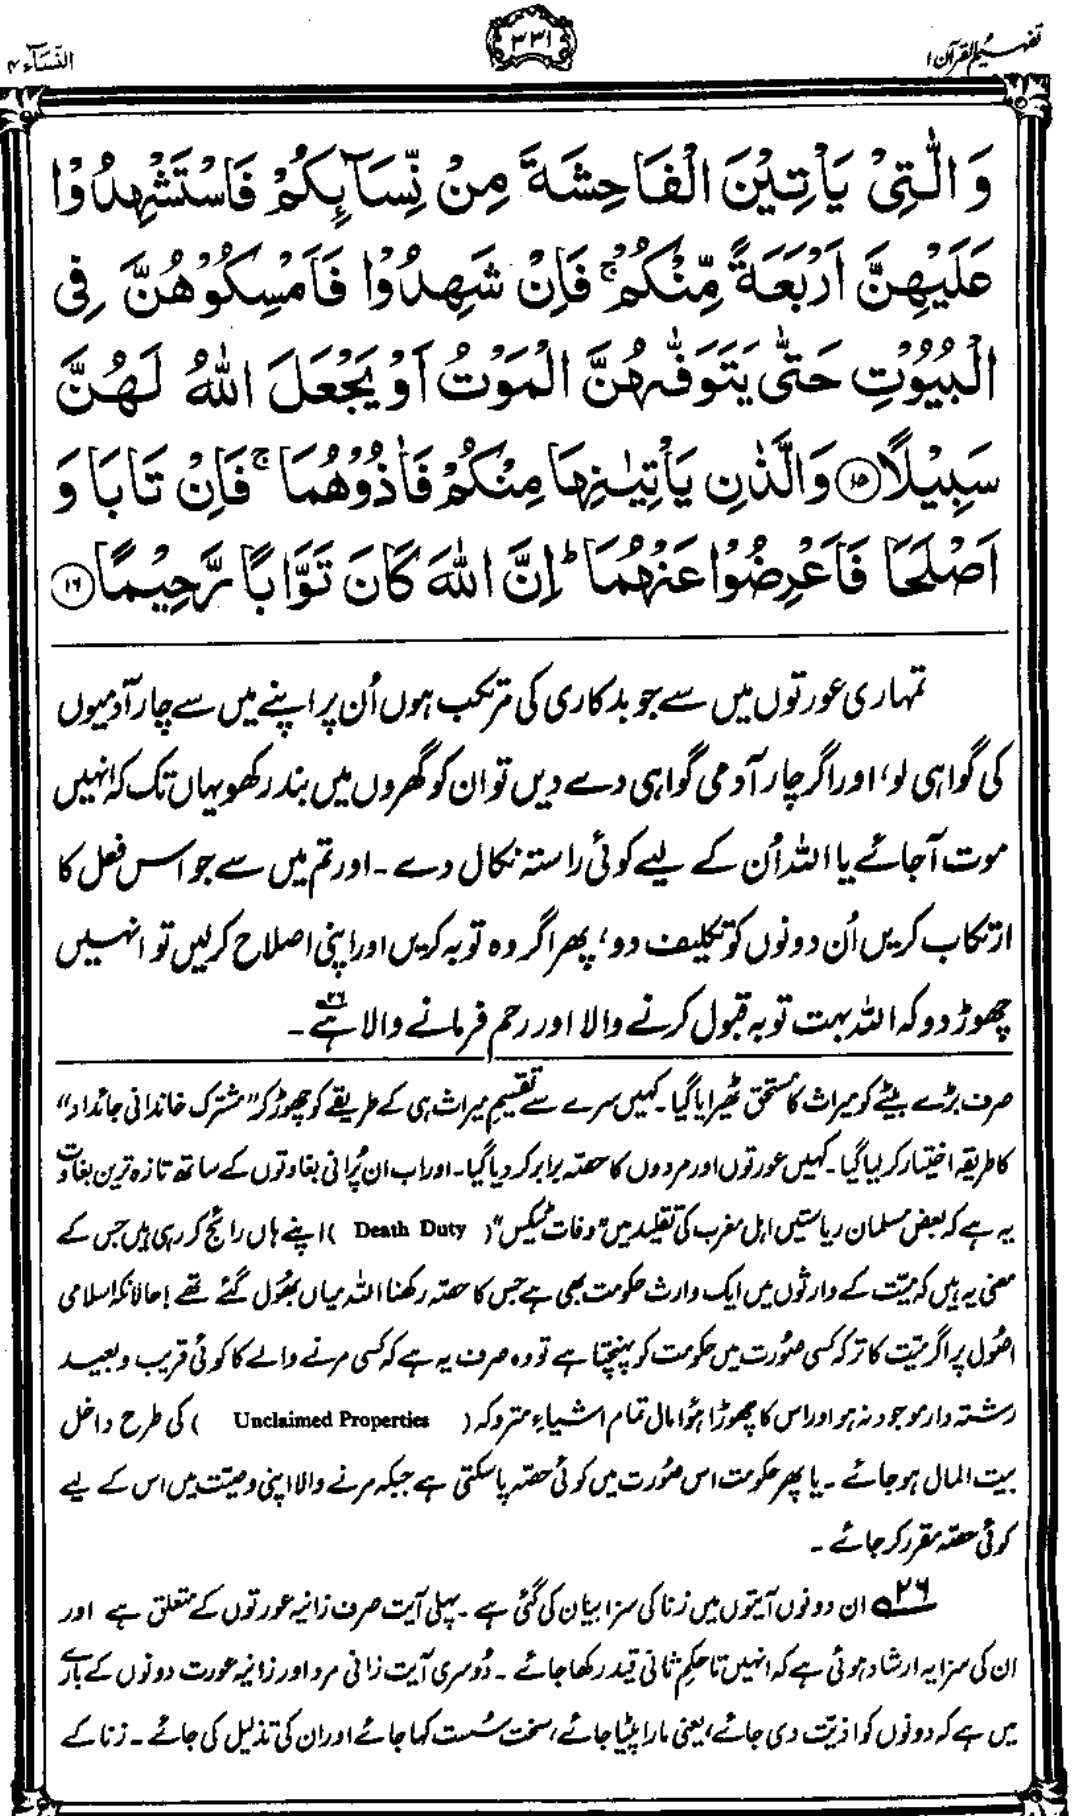 تفہیم القرآن ۱
۳۳۱
النسآء ۴
وَالّٰتِیْ یَاْتِیْنَ الْفَاحِشَةَ مِنْ نِّسَآىِٕكُمْ فَاسْتَشْهِدُوْا
عَلَیْهِنَّ اَرْبَعَةً مِّنْكُمْ ۚ فَاِنْ شَهِدُوْا فَاَمْسِكُوْهُنَّ فِی
الْبُیُوْتِ حَتّٰى یَتَوَفّٰىهُنَّ الْمَوْتُ اَوْ یَجْعَلَ اللّٰهُ لَهُنَّ
سَبِیْلًا ﴿۱۵﴾ وَالَّذٰنِ یَاْتِیٰنِهَا مِنْكُمْ فَاٰذُوْهُمَا ۚ فَاِنْ تَابَا وَ
اَصْلَحَا فَاَعْرِضُوْا عَنْهُمَا ؕ اِنَّ اللّٰهَ كَانَ تَوَّابًا رَّحِیْمًا ﴿۱۶﴾
تمہاری عورتوں میں سے جو بدکاری کی مرتکب ہوں اُن پر اپنے میں سے چار آدمیوں
کی گواہی لو، اور اگر چار آدمی گواہی دے دیں تو ان کو گھروں میں بند رکھو یہاں تک کہ انہیں
موت آجائے یا اللہ اُن کے لیے کوئی راستہ نکال دے ۔ اور تم میں سے جو اس فعل کا
ارتکاب کریں اُن دونوں کو تکلیف دو، پھر اگر وہ توبہ کریں اور اپنی اصلاح کرلیں تو انہیں
چھوڑ دو کہ اللہ بہت توبہ قبول کرنے والا اور رحم فرمانے والا ہے ۲۶ ۔
صرف بڑے بیٹے کو میراث کا مستحق ٹھیرایا گیا ۔ کہیں سرے سے تقسیم میراث ہی کے طریقے کو چھوڑ کر ”مشترک خاندانی جائداد“
کا طریقہ اختیار کر لیا گیا ۔ کہیں عورتوں اور مردوں کا حصّہ برابر کر دیا گیا ۔ اور اب ان پُرانی بغاوتوں کے ساتھ تازہ ترین بغاوت
یہ ہے کہ بعض مسلمان ریاستیں اہل مغرب کی تقلید میں ”وفات ٹیکس“ ( Death Duty ) اپنے ہاں رائج کر رہی ہیں جس کے
معنی یہ ہیں کہ میّت کے وارثوں میں ایک وارث حکومت بھی ہے جس کا حصّہ رکھنا اللہ میاں بھُول گئے تھے ! حالانکہ اسلامی
اصُول پر اگر میّت کا ترکہ کسی صُورت میں حکومت کو پہنچتا ہے تو وہ صرف یہ ہے کہ کسی مرنے والے کا کوئی قریب و بعید
رشتہ دار موجود نہ ہو اور اس کا چھوڑا ہوُا مال تمام اشیاءِ متروکہ ( Unclaimed Properties ) کی طرح داخل
بیت المال ہوجائے ۔ یا پھر حکومت اس صُورت میں کوئی حصّہ پا سکتی ہے جبکہ مرنے والا اپنی وصیّت میں اس کے لیے
کوئی حصّہ مقرر کر جائے ۔
۲۶ ان دونوں آیتوں میں زنا کی سزا بیان کی گئی ہے ۔ پہلی آیت صرف زانیہ عورتوں کے متعلق ہے اور
ان کی سزا یہ ارشاد ہوئی ہے کہ انہیں تاحکمِ ثانی قید رکھا جائے ۔ دُوسری آیت زانی مرد اور زانیہ عورت دونوں کے بارے
میں ہے کہ دونوں کو اذیّت دی جائے، یعنی مارا پیٹا جائے، سخت سُست کہا جائے اور ان کی تذلیل کی جائے ۔ زنا کے